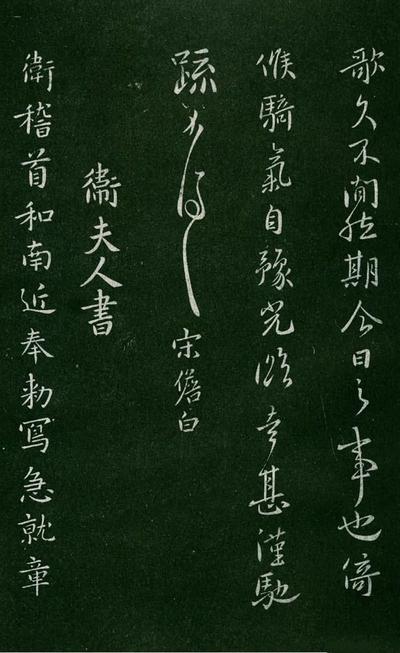 歌久不期今日之事也倚
候騎氣自豫光臨幸甚謹馳
疏宋儋白
衛夫人書
衛稽首和南近奉勅寫急就章